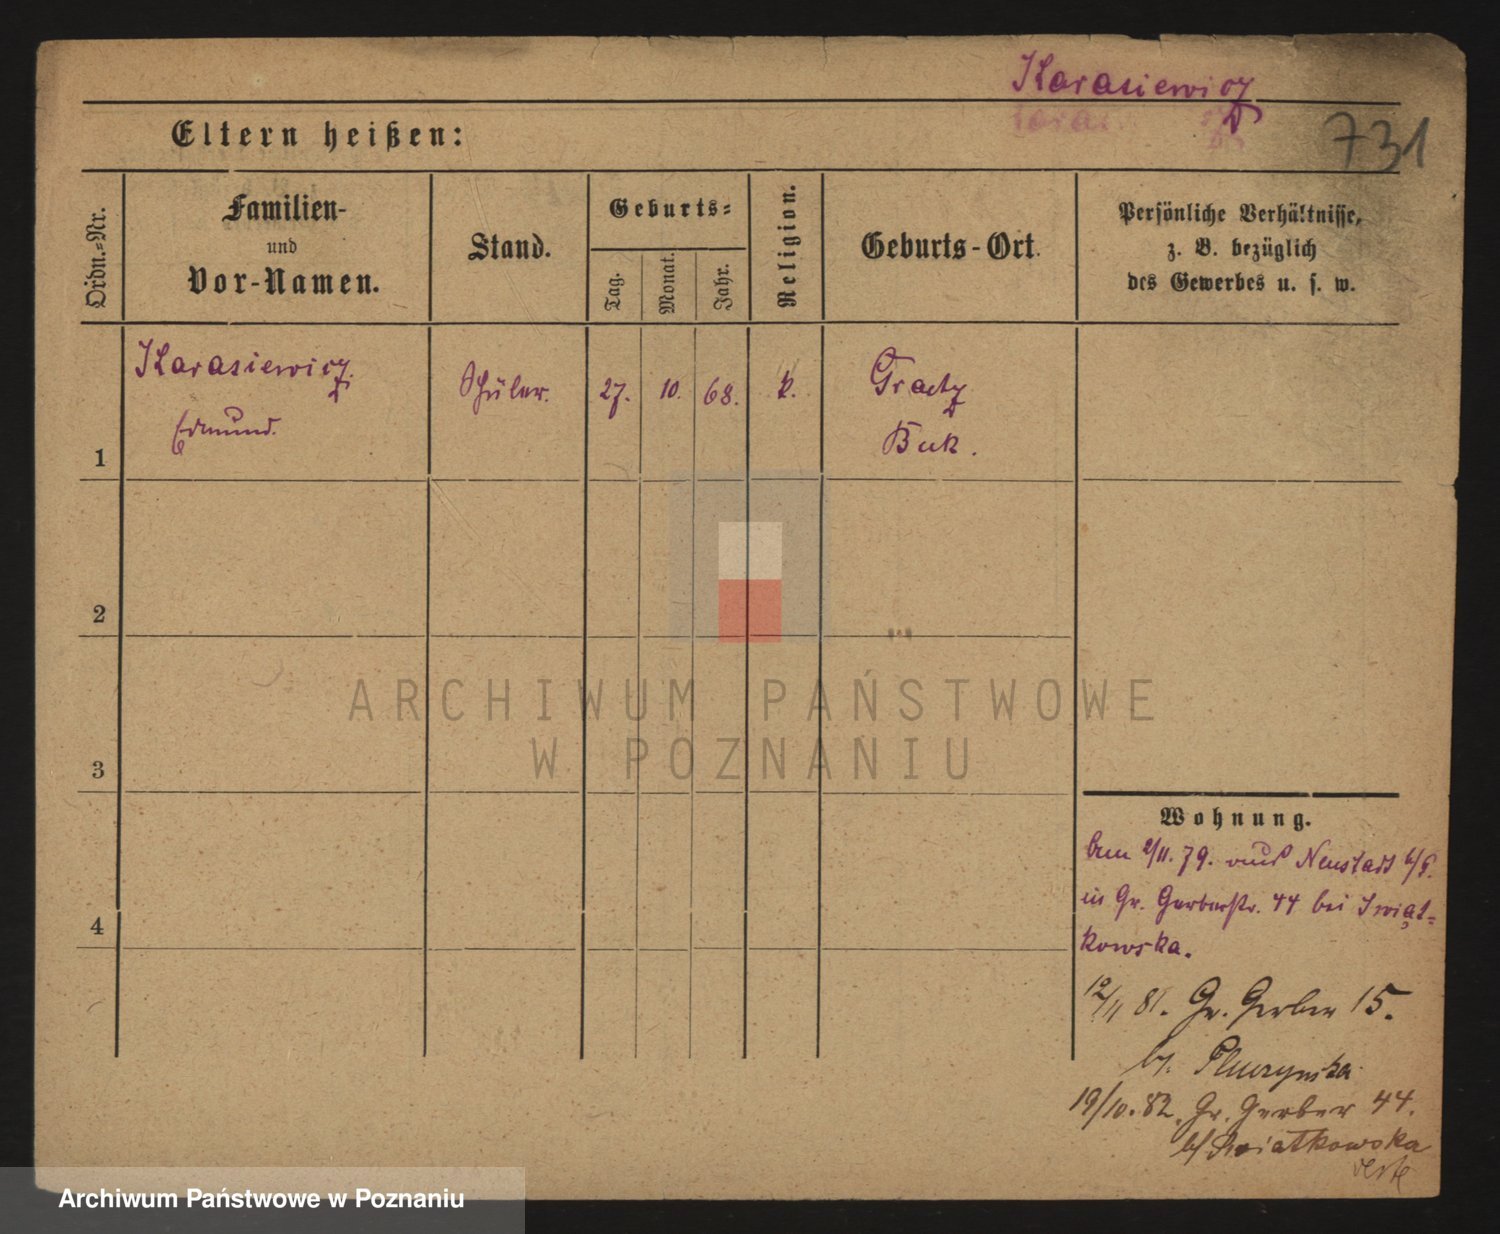 Karasiewicz
731
Eltern heißen:
Ordn.-Nr.
Familien-
und
Vor-Namen.
Stand.
Geburts-
Tag.
Monat.
Jahr.
Religion.
Geburts-Ort.
Persönliche Verhältnisse,
z. B. bezüglich
des Gewerbes u. s. w.
1
Karasiewicz
Edmund.
Schüler.
27.
10.
68.
k.
Gratz
Buk.
2
3
4
ARCHIWUM PAŃSTWOWE
W POZNANIU
Wohnung.
2/11. 79. aus Neustadt b/P.
in Gr. Gerberstr. 44 bei Swiąt-
kowska.
12/11 81. Gr. Gerber 15.
b.
19/10. 82. Gr. Gerber 44.
b/ Swiatkowska
Archiwum Państwowe w Poznaniu